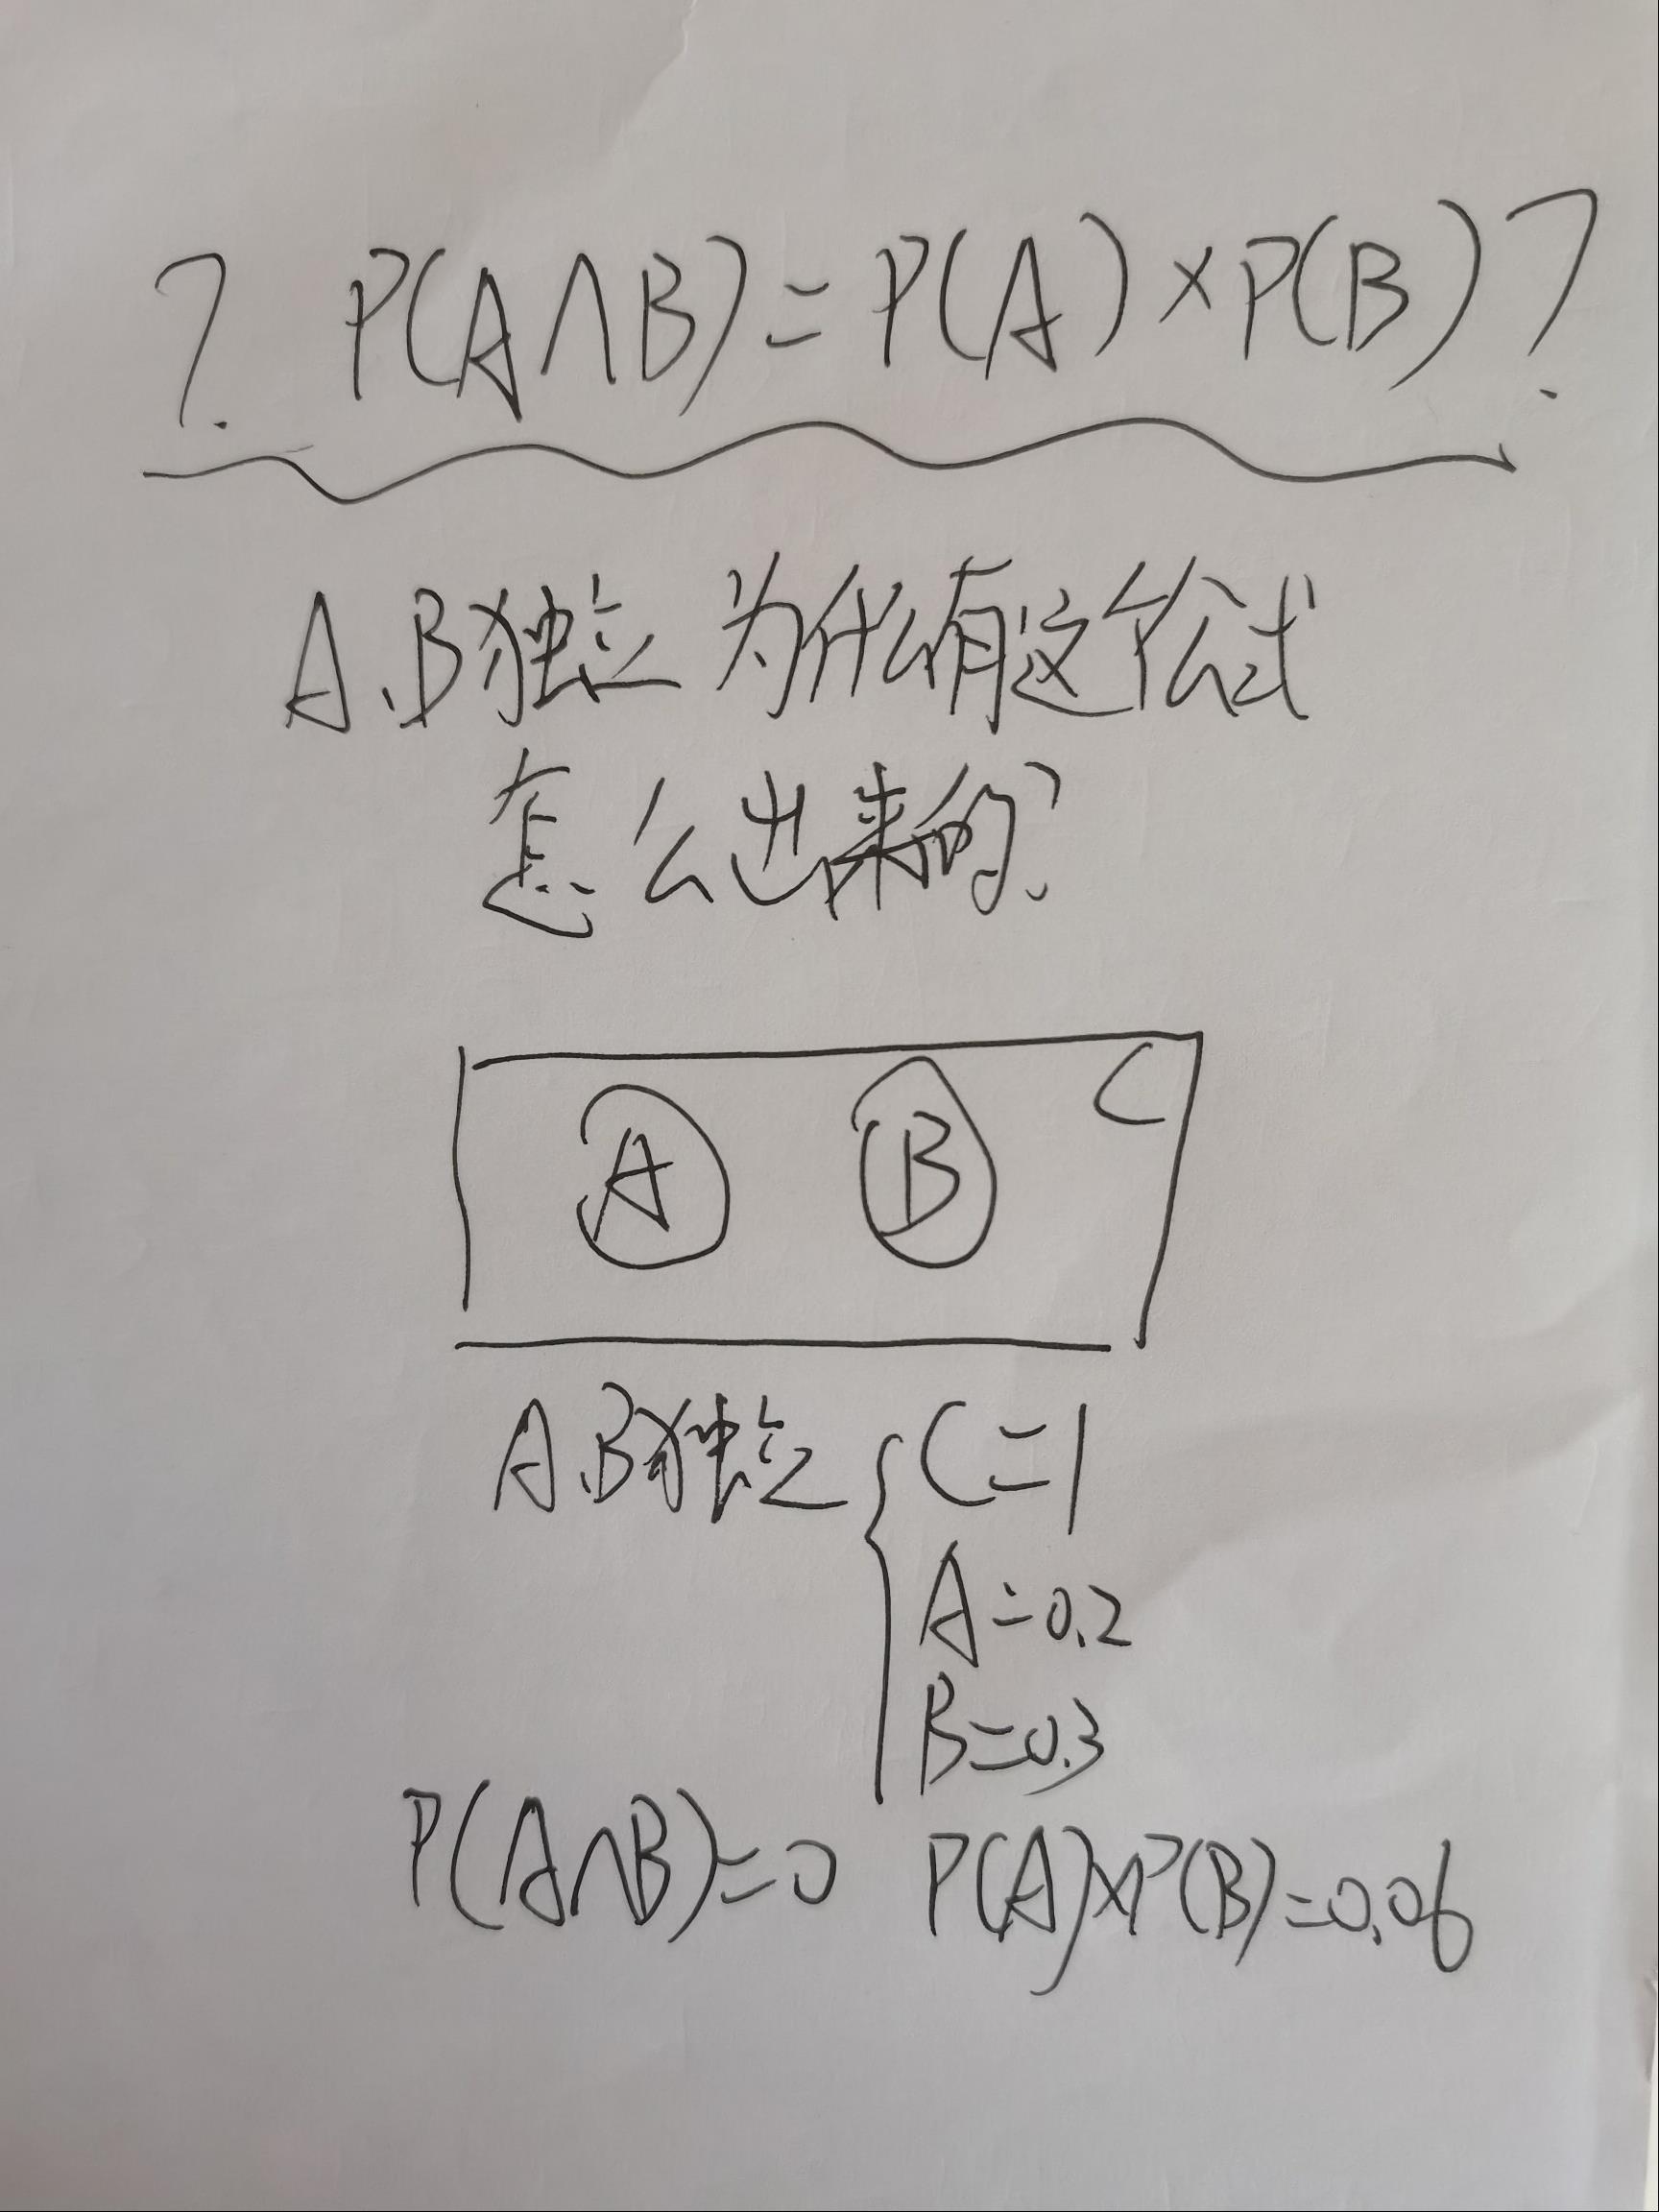 ? P(A∩B)=P(A)×P(B)?
A.B独立 为什么有这个公式
怎么出来的?
A B C
A.B独立 { C=1
A=0.2
B=0.3
P(A∩B)=0 P(A)×P(B)=0.06